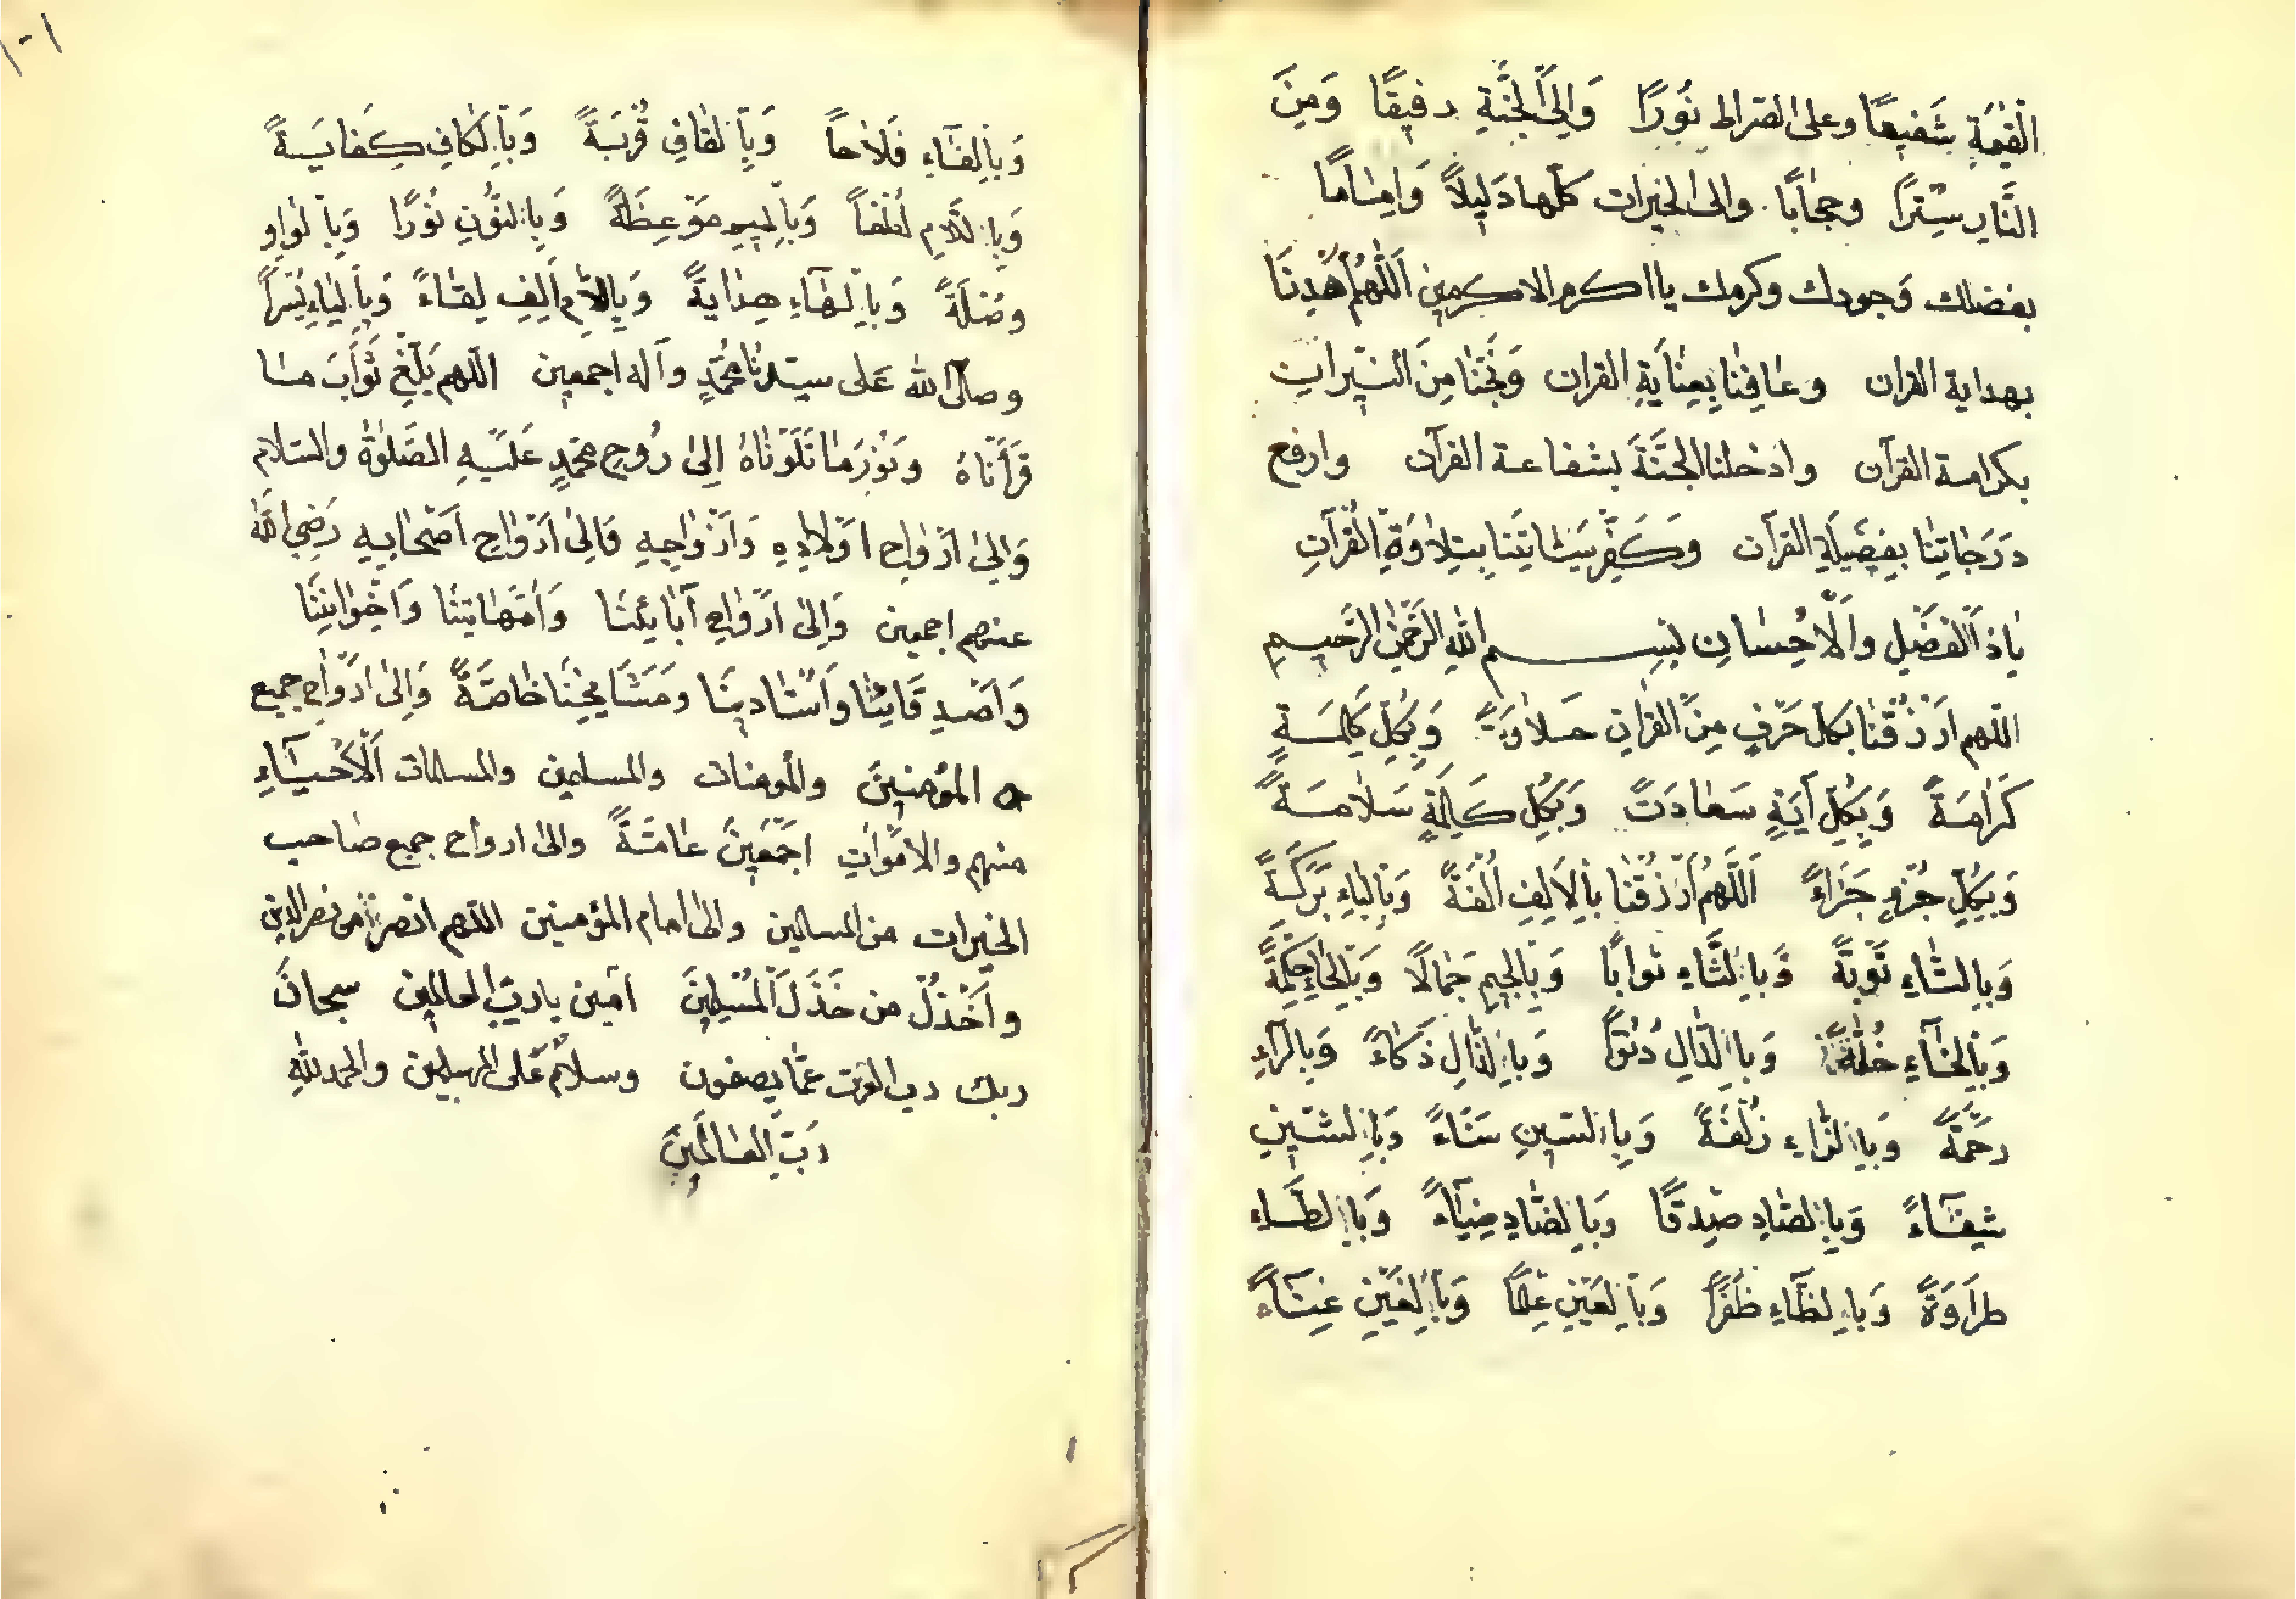 الْقِيٰمَةِ شَفِيعًا وعلى الصّراط نُورًا وَإِلَى الْجَنَّةِ رفِيقًا وَمِنَ
النَّارِ سِتْرًا وحِجٰابًا والى الخيرات كلّها دَلِيلاً وَاِمٰامًا
بفضلك وَجودك وكرمك يا اكرم الاكرمين اَللّٰهُمَّ اهْدِنَا
بهداية القران وعٰافِنٰا بِعِنٰايَةِ القران وَنَجِّنٰا مِنَ النّيرانِ
بكرامة القرآن وادخلنا الجَنَّةَ بشفاعة القرآن وارفع
دَرَجٰاتِنٰا بِفَضِيلَةِ القرآن وَكَفِّرْ سَيّئاتِنَا بِتِلاٰوَةِ الْقُرآنِ
يٰا ذَا الْفَضْلِ والْاِحْسٰانِ بِسْمِ اللّٰهِ الرَّحْمٰنِ الرَّحِيمِ
اللّهم ارْزُقْنٰا بكلّ حَرْفٍ مِنَ القرانِ حَلاٰوَةً وَبِكُلِّ كَلِمَةٍ
كَرٰامَةً وَبِكُلِّ آيَةٍ سَعٰادَتً وَبِكُلِّ كَلِمَةٍ سَلاٰمَةً
وَبِكُلِّ جُزْءٍ جَزٰاءً اَللّٰهُمَّ ارْزُقْنٰا بِالْاَلِفِ اُلْفَةً وَبِالْبٰاءِ بَرَكَةً
وَبِالتّٰاءِ تَوْبَةً وَبِالثّٰاءِ ثوابًا وَبِالْجِيمِ جَمٰالًا وَبِالْحٰاءِ حِكْمَةً
وَبِالْخٰآءِ خُلَّةً وَبِالدّٰالِ دُنُوًّا وَبِالذّٰالِ ذَكٰاءً وَبِالرّٰاءِ
رَحْمَةً وَبِالزّٰاءِ زُلْفَةً وَبِالسّينِ سَنٰاءً وَبِالشّينِ
شِفٰآءً وَبِالصّٰادِ صِدْقًا وَبِالضّٰادِ ضِيٰآءً وَبِالطّٰاءِ
طَرٰاوَةً وَبِالظّٰاءِ ظَفَرًا وَبِالْعَيْنِ عِلْمًا وَبِالْغَيْنِ غِنٰآءً
١٠١
وَبِالْفٰآءِ فَلاٰحاً وَبِالْقٰافِ قُرْبَةً وَبِالْكٰافِ كِفايَةً
وَبِاللّاٰمِ لُطْفاً وَبِالْمِيمِ مَوْعِظَةً وَبِالنُّونِ نُورًا وَبِالْوٰاوِ
وصْلَةً وَبِالْهٰآءِ هِدٰايَةً وَبِاللّاٰمِ اَلِفِ لِقٰاءً وَبِالْيٰاءِ يُسْرًا
وصلّى اللّٰه عَلى سيّدنٰا مُحَمَّدٍ وآله اجمعين اللّهم بَلِّغْ ثَوٰابَ مٰا
قَرَأْنٰاهُ وَنُورَ مٰا تَلَوْنٰاهُ اِلىٰ رُوحِ مُحَمَّدٍ عَلَيْهِ الصَّلوٰةُ والسّلام
وَاِلىٰ اَرْوٰاحِ اَوْلاٰدِهِ وَاَزْوٰاجِهِ وَاِلىٰ اَرْوٰاحِ اَصْحٰابِهِ رَضِيَ اللّٰه
عنهم اجمعين وَاِلىٰ اَرْوٰاحِ آبٰائِنٰا وَاُمَّهٰاتِنٰا وَاِخْوٰانِنَا
وَاَصْدِقَائِنٰا وَاُسْتٰادِينَا وَمَشٰايِخِنٰا خٰاصَّةً وَاِلىٰ اَرْوٰاحِ جميع
المؤمنينَ والمؤمنات والمسلمين والمسلمات اَلْاَحْيٰآءِ
منهم والاَمْوٰاتِ اجْمَعِينَ عٰامَّةً والىٰ ارواح جميع صٰاحب
الخيرات من المسلمين والىٰ امام المؤمنين اللّهم انصر من نصر الدين
وَاخْذُلْ من خَذَلَ الْمُسْلِمِينَ آمين يا ربّ العالمين سبحانَ
ربك رب العزت عمّا يصفون وسلامٌ على المرسلين والحمد للّٰهِ
رَبِّ الْعٰالَمِينَ